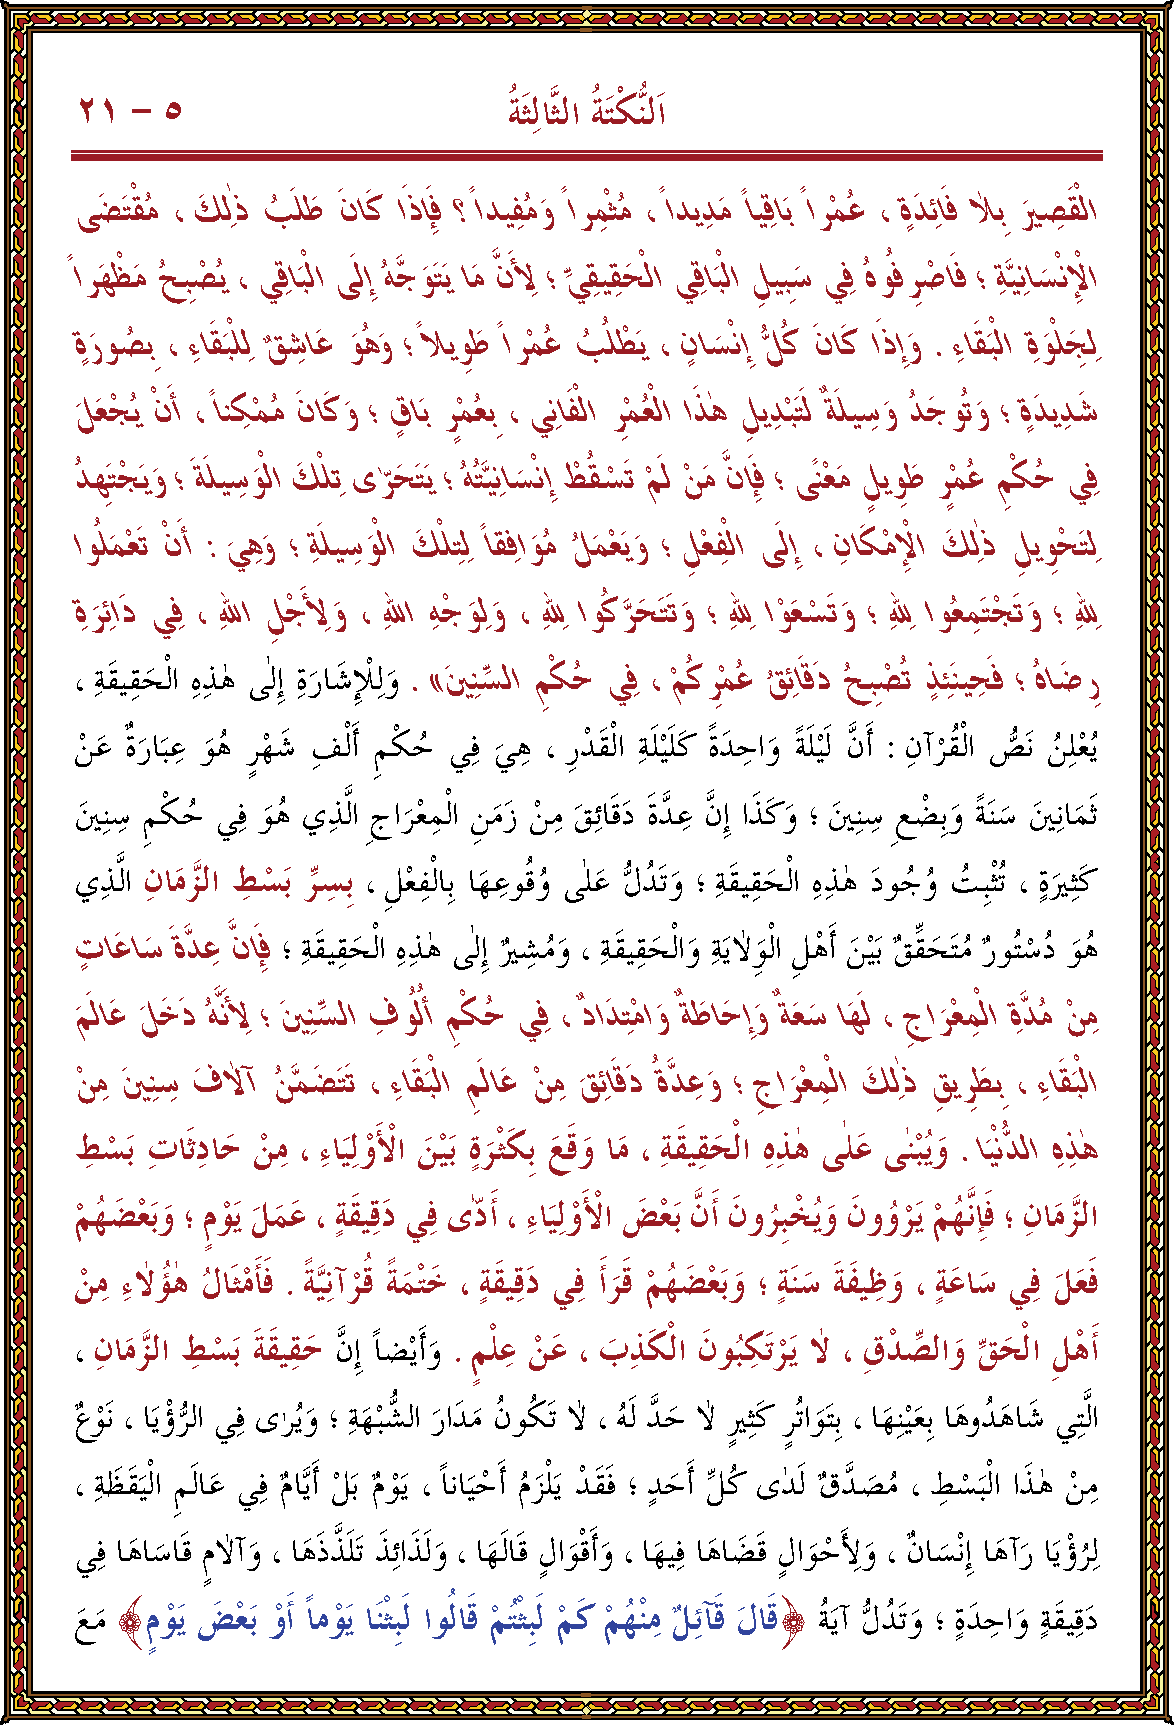 ٥ – ٢١
اَلنُّكْتَةُ الثَّالِثَةُ
الْقَصِيرَ بِلاَ فَائِدَةٍ ، عُمْراً بَاقِياً مَدِيداً ، مُثْمِراً وَمُفِيداً ؟ فَإِذَا كَانَ طَلَبُ ذٰلِكَ ، مُقْتَضَى
الْإِنْسَانِيَّةِ ؛ فَاصْرِفُوهُ فِي سَبِيلِ الْبَاقِي الْحَقِيقِيِّ ؛ لِأَنَّ مَا يَتَوَجَّهُ إِلَى الْبَاقِي ، يُصْبِحُ مَظْهَراً
لِجَلْوَةِ الْبَقَاءِ . وَإِذَا كَانَ كُلُّ إِنْسَانٍ ، يَطْلُبُ عُمْراً طَوِيلاً ؛ وَهُوَ عَاشِقٌ لِلْبَقَاءِ ، بِصُورَةٍ
شَدِيدَةٍ ؛ وَتُوجَدُ وَسِيلَةٌ لَتَبْدِيلِ هٰذَا الْعُمْرِ الْفَانِي ، بِعُمْرٍ بَاقٍ ؛ وَكَانَ مُمْكِناً ، أَنْ يُجْعَلَ
فِي حُكْمِ عُمْرٍ طَوِيلٍ مَعْنًى ؛ فَإِنَّ مَنْ لَمْ تَسْقُطْ إِنْسَانِيَّتُهُ ؛ يَتَحَرَّى تِلْكَ الْوَسِيلَةَ ؛ وَيَجْتَهِدُ
لِتَحْوِيلِ ذٰلِكَ الْإِمْكَانِ ، إِلَى الْفِعْلِ ؛ وَيَعْمَلُ مُوَافِقاً لِتِلْكَ الْوَسِيلَةِ ؛ وَهِيَ : أَنْ تَعْمَلُوا
لِلهِ ؛ وَتَجْتَمِعُوا لِلهِ ؛ وَتَسْعَوْا لِلهِ ؛ وَتَتَحَرَّكُوا لِلهِ ، وَلِوَجْهِ اللهِ ، وَلِأَجْلِ اللهِ ، فِي دَائِرَةِ
رِضَاهُ ؛ فَحِينَئِذٍ تُصْبِحُ دَقَائِقُ عُمْرِكُمْ ، فِي حُكْمِ السِّنِينَ» . وَلِلْإِشَارَةِ إِلٰى هٰذِهِ الْحَقِيقَةِ ،
يُعْلِنُ نَصُّ الْقُرْآنِ : أَنَّ لَيْلَةً وَاحِدَةً كَلَيْلَةِ الْقَدْرِ ، هِيَ فِي حُكْمِ أَلْفِ شَهْرٍ هُوَ عِبَارَةٌ عَنْ
ثَمَانِينَ سَنَةً وَبِضْعِ سِنِينَ ؛ وَكَذَا إِنَّ عِدَّةَ دَقَائِقَ مِنْ زَمَنِ الْمِعْرَاجِ الَّذِي هُوَ فِي حُكْمِ سِنِينَ
كَثِيرَةٍ ، تُثْبِتُ وُجُودَ هٰذِهِ الْحَقِيقَةِ ؛ وَتَدُلُّ عَلٰى وُقُوعِهَا بِالْفِعْلِ ، بِسِرِّ بَسْطِ الزَّمَانِ الَّذِي
هُوَ دُسْتُورٌ مُتَحَقِّقٌ بَيْنَ أَهْلِ الْوَلاَيَةِ وَالْحَقِيقَةِ ، وَمُشِيرٌ إِلٰى هٰذِهِ الْحَقِيقَةِ ؛ فَإِنَّ عِدَّةَ سَاعَاتٍ
مِنْ مُدَّةِ الْمِعْرَاجِ ، لَهَا سَعَةٌ وَإِحَاطَةٌ وَامْتِدَادٌ ، فِي حُكْمِ أُلُوفِ السِّنِينَ ؛ لِأَنَّهُ دَخَلَ عَالَمَ
الْبَقَاءِ ، بِطَرِيقِ ذٰلِكَ الْمِعْرَاجِ ؛ وَعِدَّةُ دَقَائِقَ مِنْ عَالَمِ الْبَقَاءِ ، تَتَضَمَّنُ آلاَفَ سِنِينَ مِنْ
هٰذِهِ الدُّنْيَا . وَيُبْنٰى عَلٰى هٰذِهِ الْحَقِيقَةِ ، مَا وَقَعَ بِكَثْرَةٍ بَيْنَ الْأَوْلِيَاءِ ، مِنْ حَادِثَاتِ بَسْطِ
الزَّمَانِ ؛ فَإِنَّهُمْ يَرْوُونَ وَيُخْبِرُونَ أَنَّ بَعْضَ الْأَوْلِيَاءِ ، أَدّٰى فِي دَقِيقَةٍ ، عَمَلَ يَوْمٍ ؛ وَبَعْضَهُمْ
فَعَلَ فِي سَاعَةٍ ، وَظِيفَةَ سَنَةٍ ؛ وَبَعْضَهُمْ قَرَأَ فِي دَقِيقَةٍ ، خَتْمَةً قُرْآنِيَّةً . فَأَمْثَالُ هٰؤُلاَءِ مِنْ
أَهْلِ الْحَقِّ وَالصِّدْقِ ، لاَ يَرْتَكِبُونَ الْكَذِبَ ، عَنْ عِلْمٍ . وَأَيْضاً إِنَّ حَقِيقَةَ بَسْطِ الزَّمَانِ ،
الَّتِي شَاهَدُوهَا بِعَيْنِهَا ، بِتَوَاتُرٍ كَثِيرٍ لاَ حَدَّ لَهُ ، لاَ تَكُونُ مَدَارَ الشُّبْهَةِ ؛ وَيُرٰى فِي الرُّؤْيَا ، نَوْعٌ
مِنْ هٰذَا الْبَسْطِ ، مُصَدَّقٌ لَدٰى كُلِّ أَحَدٍ ؛ فَقَدْ يَلْزَمُ أَحْيَاناً ، يَوْمٌ بَلْ أَيَّامٌ فِي عَالَمِ الْيَقَظَةِ ،
لِرُؤْيَا رَآهَا إِنْسَانٌ ، وَلِأَحْوَالٍ قَضَاهَا فِيهَا ، وَأَقْوَالٍ قَالَهَا ، وَلَذَائِذَ تَلَذَّذَهَا ، وَآلاَمٍ قَاسَاهَا فِي
دَقِيقَةٍ وَاحِدَةٍ ؛ وَتَدُلُّ آيَةُ ﴿قَالَ قَآئِلٌ مِنْهُمْ كَمْ لَبِثْتُمْ قَالُوا لَبِثْنَا يَوْماً أَوْ بَعْضَ يَوْمٍ﴾ مَعَ